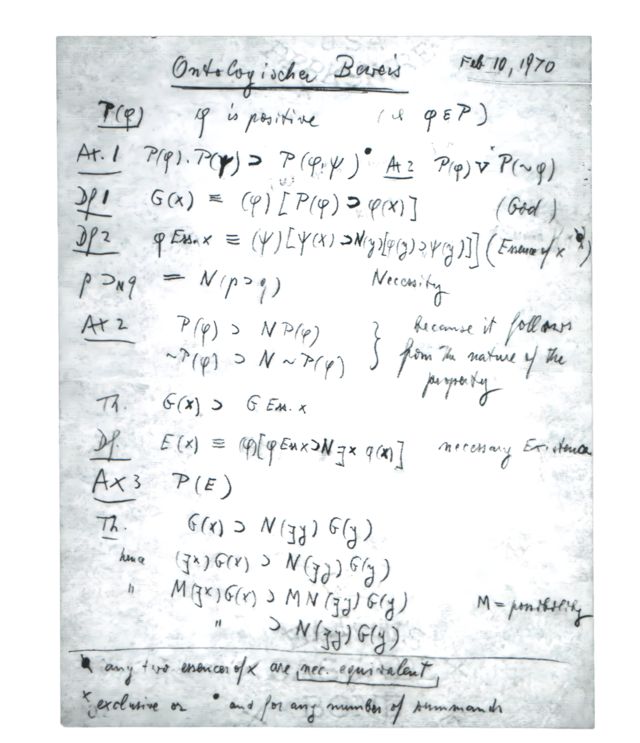 Ontologischer Beweis Feb 10, 1970
P(φ) φ is positive (i.e. φ∈P)
Ax. 1 P(φ).P(ψ) ⊃ P(φ.ψ)• Ax 2 P(φ) ∨ˣ P(~φ)
Df 1 G(x) ≡ (φ)[P(φ) ⊃ φ(x)] (God)
Df 2 φ Ess. x ≡ (ψ)[ψ(x) ⊃ N(y)[φ(y) ⊃ ψ(y)]] (Essence of x)
p ⊃ɴ q = N(p ⊃ q) Necessity
Ax 2 P(φ) ⊃ N P(φ) } because it follows
~P(φ) ⊃ N ~P(φ) from the nature of the
property
Th. G(x) ⊃ G Ess. x
Df. E(x) ≡ (φ)[φ Ess x ⊃ N ∃x φ(x)] necessary Existence
Ax 3 P(E)
Th. G(x) ⊃ N(∃y) G(y)
hence (∃x) G(x) ⊃ N(∃y) G(y)
" M(∃x) G(x) ⊃ M N(∃y) G(y) M = possibility
" ⊃ N(∃y) G(y)
any two essences of x are nec. equivalent
ˣ exclusive or • and for any number of summands